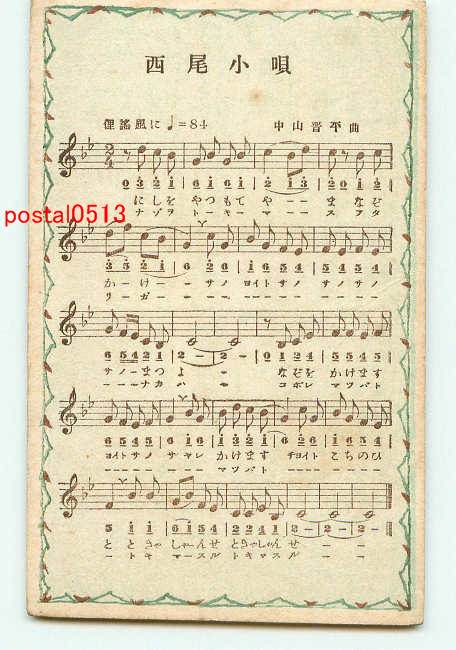 西尾小唄
俚謡風に ♩=84 中山晋平曲
2/4
0 3 2 1 | 6 1 6 1 | 2 1 3 | 2 0 1 2
にしを やつもて やー まなぞ
ナゾヲ トーキー マーー スフタ
postal0513
3 5 2 1 | 6 2 6 | 1 6 5 4 | 5 4 5 4
かーけー サノ ヨイトサノ サノサノ
リーガー ーー ーーーー ーーーー
6 5 4 2 1 | 2 - | 2 - | 0 1 2 4 | 5 5 4 5
サノーまつ よ ー なぞを かけます
ーーナカ ハ ー コボレ マツバト
ヨイトサノ サヤレ かけます チョイト こちのひ
ーーーー ーーー マツバト
5 1 1 | 6 1 5 4 | 2 2 4 1 | 2 - | 2 - | 2 -
とときやしやんせ ときやしやんせ ーー
ートキ マースル トキマスル ーー